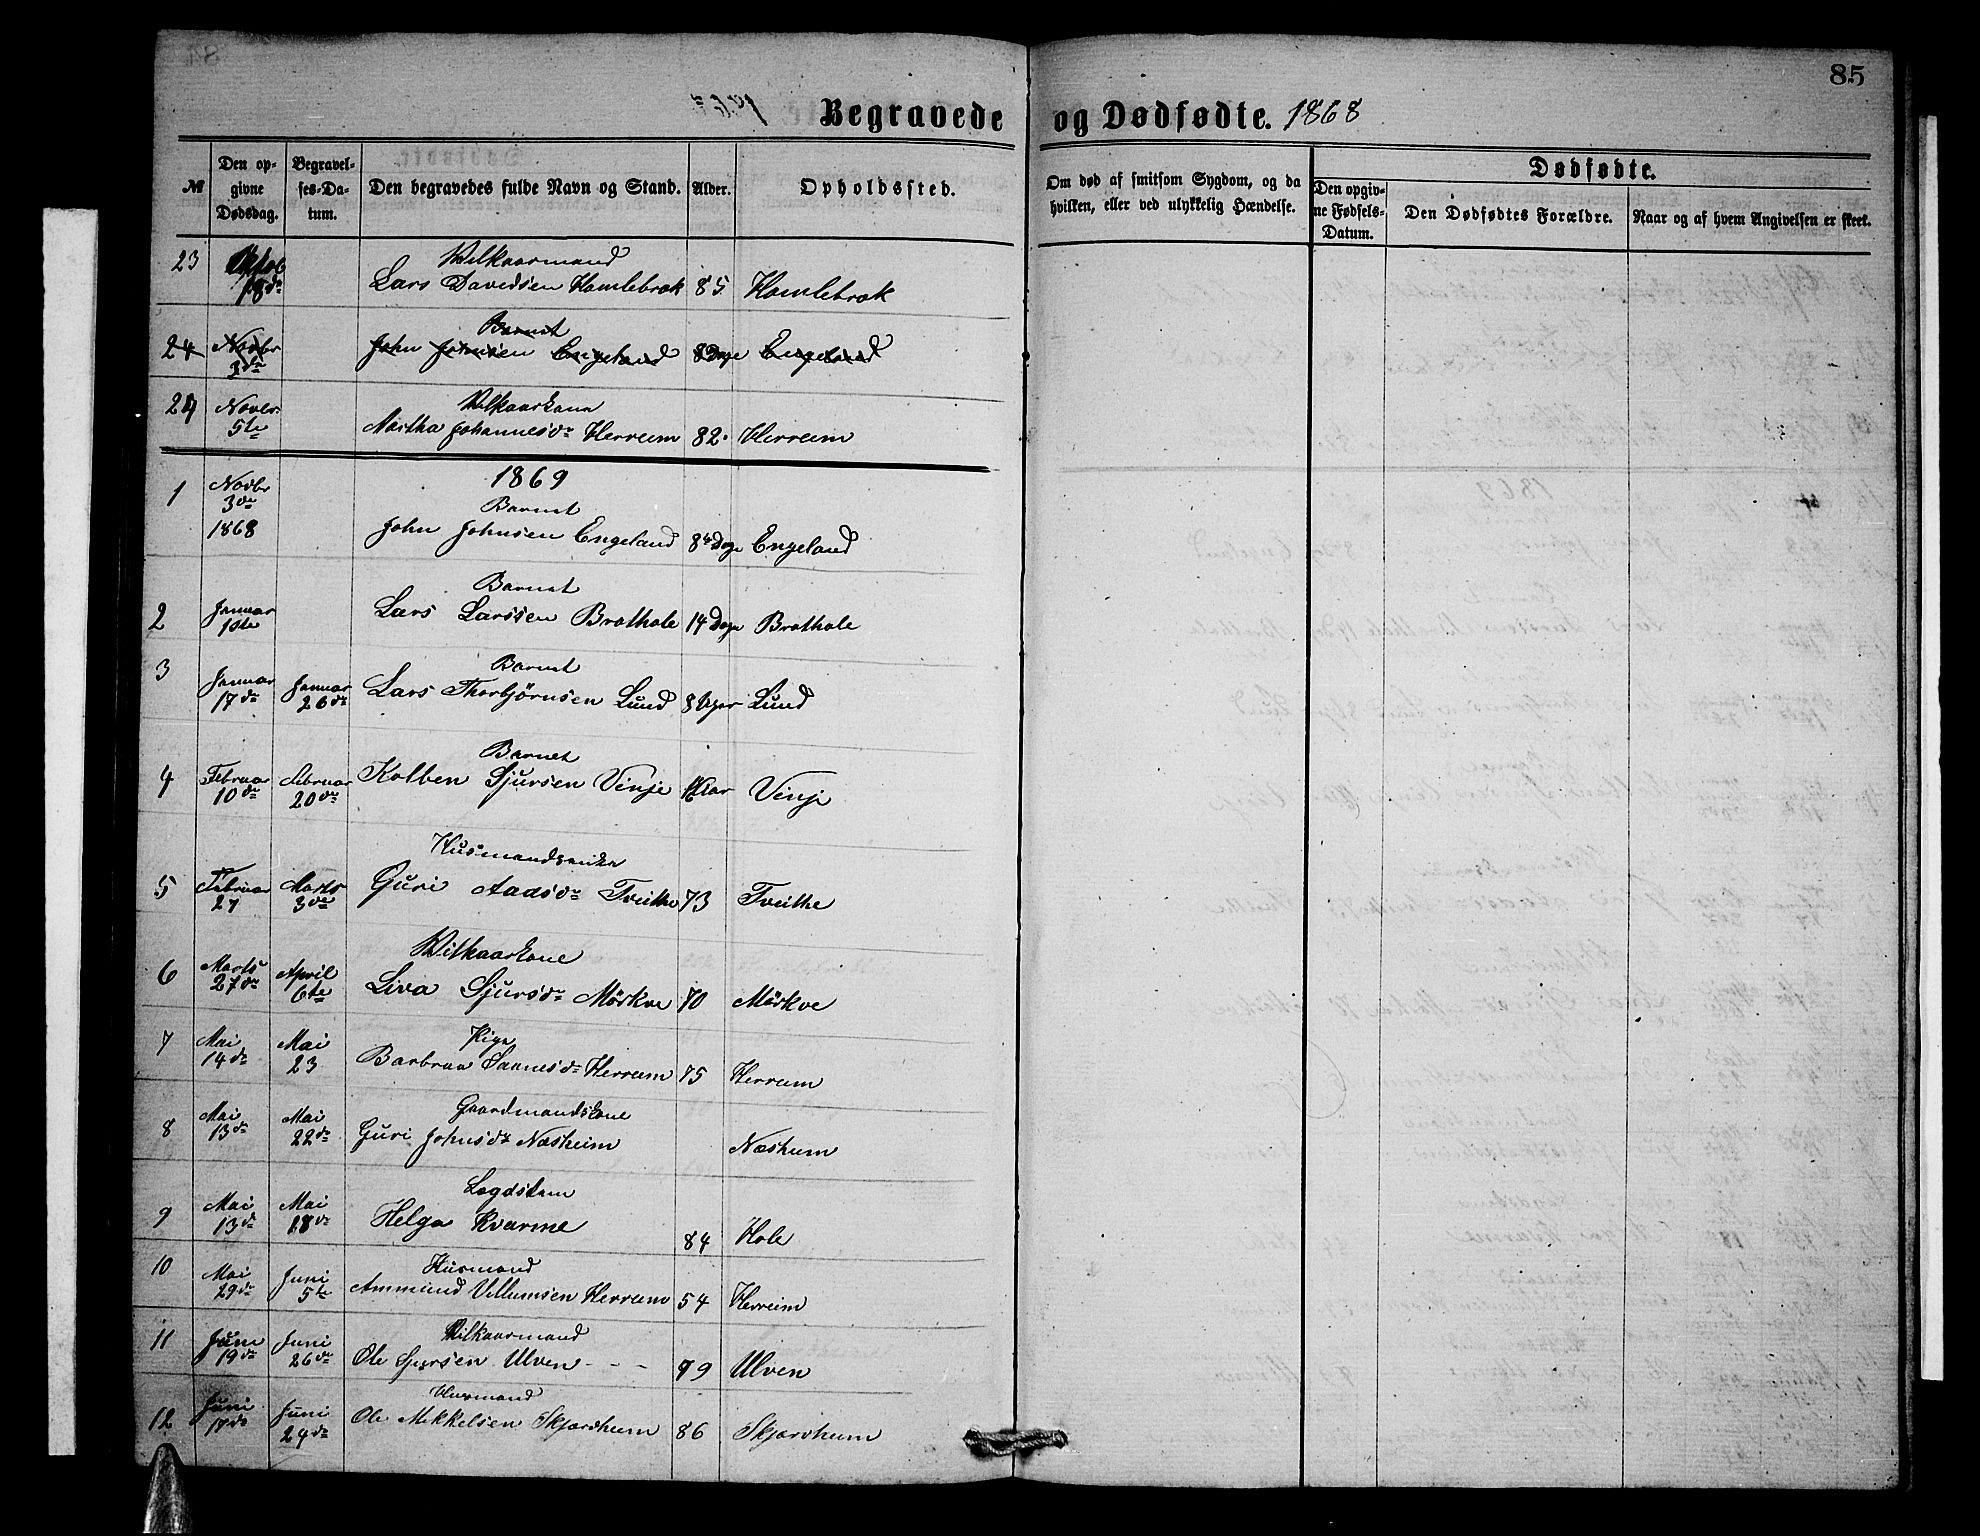 85
Begravede og Dødfødte. 1868
№ Den opgivne Dødsdag. Begravelses-Datum. Den begravedes fulde Navn og Stand. Alder. Opholdssted. Om død af smitsom Sygdom, og da hvilken, eller ved ulykkelig Hændelse. Dødfødte.
Den opgivne Fødsels-Datum. Den Dødfødtes Forældre. Naar og af hvem Angivelsen er skeet.
23 Vilkaarmand
18de Lars Davidsen Hamlebrok 85 Hamlebrok
24 Novbr Barnet
3de John Johnsen Engeland 8 Dage Engeland
24 Novbr Vilkaarkone
5te Martha Johannesdr Herreim 82 Herreim
1869
1 Novbr 3de 1868 Barnet
John Johnsen Engeland 8 Dage Engeland
2 Januar 10te Barnet
Lars Larssen Brathole 14 Dage Brathole
3 Januar 17de Januar 26de Barnet
Lars Thorbjørnsen Lund 8 Uger Lund
4 Februar 10de Februar 20de Barnet
Kolben Sjursen Vinje Aar Vinje
5 Februar 27 Marts 3de Husmandsenke
Guri Aadsdr Tveithe 73 Tveithe
6 Marts 27de April 6te Vilkaarkone
Liva Sjursdr Mørkve 70 Mørkve
7 Mai 14de Mai 23 Pige
Barbraa Herreim 75 Herreim
8 Mai 13de Mai 22de Gaardmandskone
Guri Johnsdr Næsheim Næsheim
9 Mai 13de Mai 18de Lægdslem
Helga Kvarme 84 Hole
10 Mai 29de Juni 5te Husmand
Ammund Villumsen Herreim 54 Herreim
11 Juni 19de Juni 26de Vilkaarmand
Ole Sjursen Ulven - - - 79 Ulven
12 Juni 17de Juni 24de Husmand
Ole Mikkelsen Skjærdheim 86 Skjærdheim